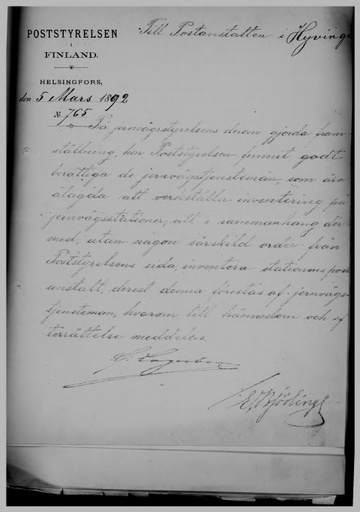 POSTSTYRELSEN
i
FINLAND.
HELSINGFORS,
den 5 Mars 1892
№ 765
Till Postanstalten i Hyvinge
På jernvägsstyrelsens derom gjorda fram
ställning, har Poststyrelsen funnit godt
berättiga de jernvägstjensteman, som äro
ålagda att verkställa inventering på
jernvägsstationer, att i sammanhang der
med, utan någon särskild order från
Poststyrelsens sida, inventera stationens post
anstalt, derest denna förestås af jernvägs
tjensteman, hvarom till kännedom och ef
terrättelse meddelas.